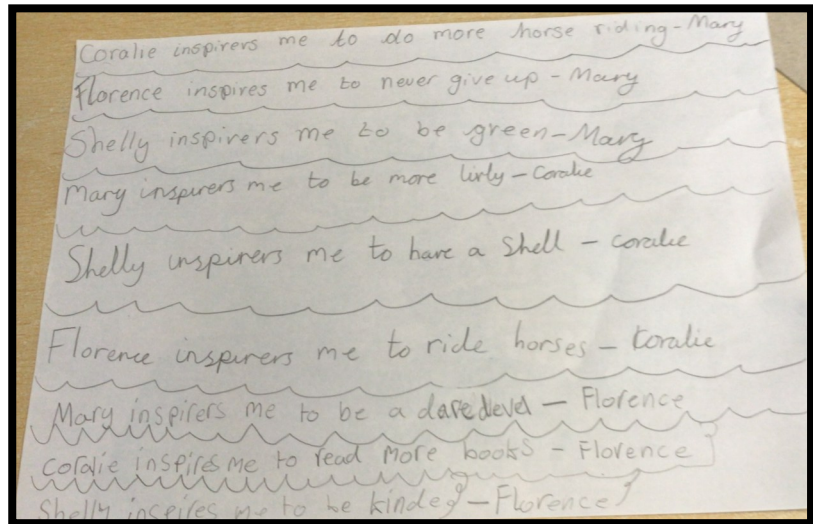 Coralie inspirers me to do more horse riding - Mary
Florence inspires me to never give up - Mary
Shelly inspirers me to be green - Mary
Mary inspirers me to be more livly - Coralie
Shelly inspirers me to have a shell - coralie
Florence inspirers me to ride horses - Coralie
Mary inspirers me to be a daredevel - Florence
coralie inspires me to read more books - Florence
Shelly inspires me to be kinder - Florence